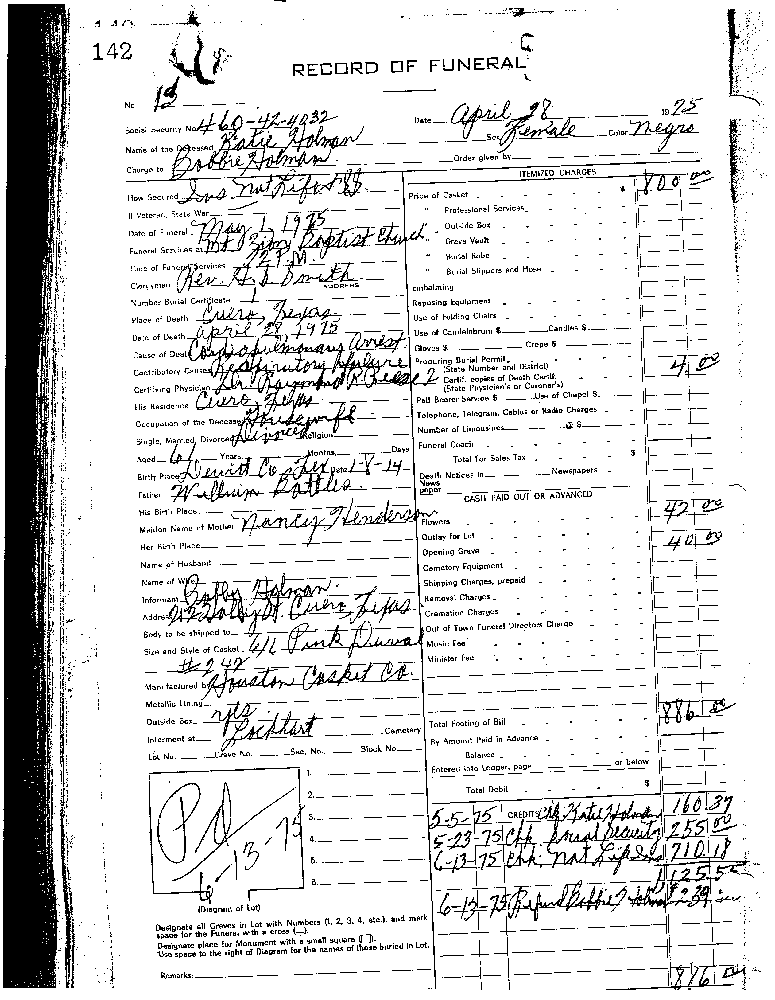 142
RECORD OF FUNERAL
No.
Social Security No. 460-42-4032
Date April 28 1975
Name of the Deceased Katie Holman
Sex Female Color Negro
Charge to Bobbie Holman
Order given by
How Secured Ins. Nat Life
If Veteran, State War
Date of Funeral May 1, 1975
Funeral Services at Mt Zion Baptist Church
Time of Funeral Services 2 P.M.
Clergyman Rev. H. D. Smith
ADDRESS
Number Burial Certificate 1
Place of Death Cuero, Texas
Date of Death April 28 1975
Cause of Death Cardiopulmonary Arrest
Contributory Causes Respiratory failure
Certifying Physician Dr. Raymond R Reese
His Residence Cuero Texas
Occupation of the Deceased Housewife
Single, Married, Divorced Divorced Religion
Aged 61 Years Months Days
Birth Place Dewitt Co., Tex Date 1-8-14
Father William Rattles
His Birth Place
Maiden Name of Mother Nancy Henderson
Her Birth Place
Name of Husband
Name of Wife
Informant Bobby Holman.
Address Cuero, Texas
Body to be shipped to
Size and Style of Casket Pink
#242
Manufactured by Houston Casket Co.
Metallic Lining
Outside Box yes
Interment at Lockhart Cemetery
Lot No. Grave No. Sec. No. Block No.
1.
2.
3.
4.
5.
6.
Pd
6-13-75
(Diagram of Lot)
Designate all Graves in Lot with Numbers (1, 2, 3, 4, etc.), and mark
space for the Funeral with a cross
Designate place for Monument with a small square
Use space to the right of Diagram for the names of those buried in Lot.
Remarks:
ITEMIZED CHARGES
Price of Casket $ 800 00
" Professional Services
" Outside Box
" Grave Vault
" Burial Robe
" Burial Slippers and Hose
Embalming
Reposing Equipment
Use of Folding Chairs
Use of Candelabrum $ Candles $
Gloves $ Crepe $
Procuring Burial Permit
(State Number and District)
2 Certif. copies of Death Certif. 4 00
(State Physician's or Coroner's)
Pall Bearer Service $ Use of Chapel $
Telephone, Telegram, Cables or Radio Charges
Number of Limousines @ $
Funeral Coach
Total for Sales Tax $
Death Notices in Newspapers
News
paper
CASH PAID OUT OR ADVANCED
Flowers 42 00
Outlay for Lot
Opening Grave 40 00
Cemetery Equipment
Shipping Charges, prepaid
Removal Charges
Cremation Charges
Out of Town Funeral Directors Charge
Music Fee
Minister Fee
Total Footing of Bill 886 00
By Amount Paid in Advance
Balance
Entered into Ledger, page or below
Total Debit $
5-5-75 CREDITS Chk Katie Holman 160 37
5-23-75 Chk Social Security 255 00
6-13-75 Chk. Nat Life Ins 710 18
1125 55
6-13-75 Refund Bobbie Holman
876 00